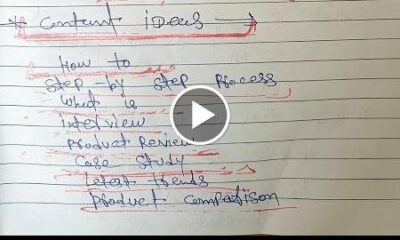 * Content ideas →
How to
Step by step Process
What is
interview
Product Review
Case Study
Letest trends
Product Comparison